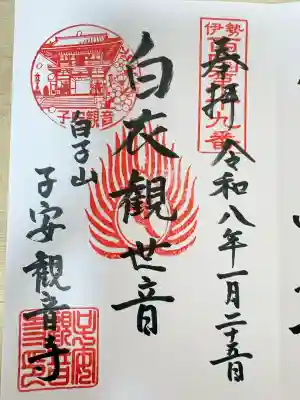 奉拝
令和八年一月二十五日
伊勢
九番
白衣観世音
子安観音
白子山
子安観音寺